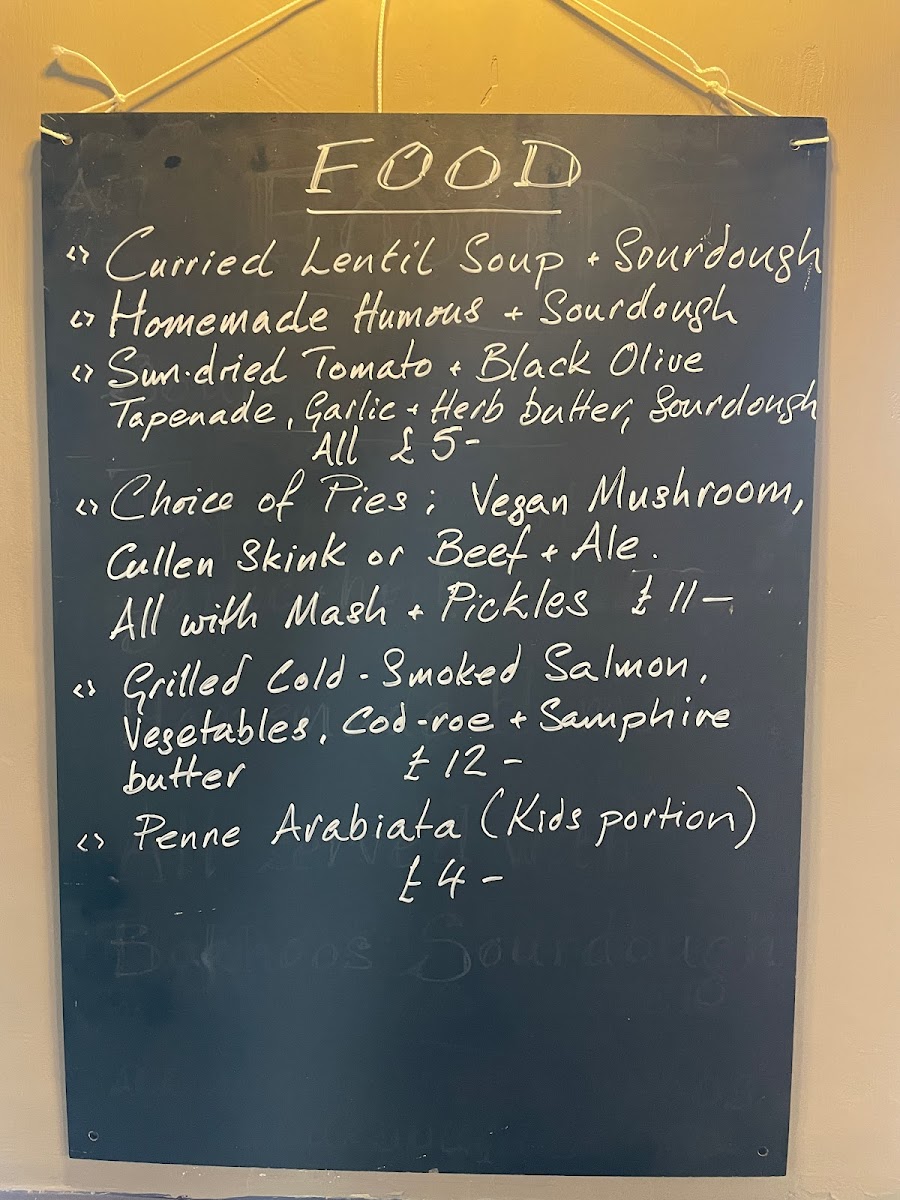 FOOD
<> Curried Lentil Soup + Sourdough
<> Homemade Humous + Sourdough
<> Sun-dried Tomato + Black Olive
Tapenade, Garlic + Herb butter, Sourdough
All £5-
<> Choice of Pies; Vegan Mushroom,
Cullen Skink or Beef + Ale.
All with Mash + Pickles £11-
<> Grilled Cold-Smoked Salmon,
Vegetables, Cod-roe + Samphire
butter £12-
<> Penne Arabiata (Kids portion)
£4-
Sourdough